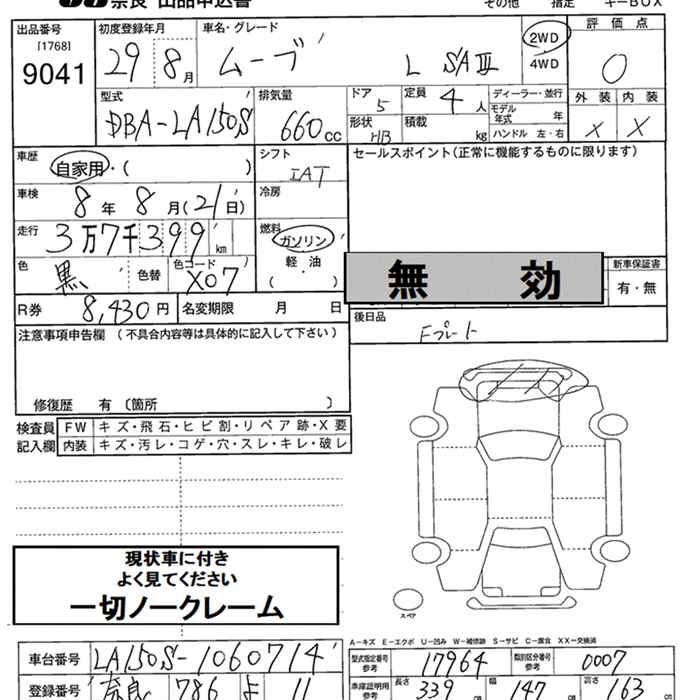 奈良 出品申込書
その他 指定 キーBOX
出品番号
[1768]
9041
初度登録年月
29 8 月
車名・グレード
ムーブ L SAⅢ
2WD
4WD
評価点
0
外装 内装
X X
型式
DBA-LA150S
排気量
660 cc
ドア
5
定員
4 人
形状
HB
積載
kg
ディーラー・並行
モデル年式 年
ハンドル 左・右
車歴
自家用・( )
シフト
IAT
セールスポイント(正常に機能するものに限ります)
車検
8 年 8 月(21日)
冷房
走行
3万7千399 km
燃料
ガソリン
軽・油
( )
色
黒
色替
色コード
X07
無 効
新車保証書
有・無
R券
8,430 円
名変期限 月 日
後日品
Fプレート
注意事項申告欄 (不具合内容等は具体的に記入して下さい)
修復歴 有 〔箇所 〕
検査員記入欄
FW キズ・飛石・ヒビ割・リペア跡・X要
内装 キズ・汚レ・コゲ・穴・スレ・キレ・破レ
現状車に付き
よく見てください
一切ノークレーム
スペア
A-キズ E-エクボ U-凹み W-補修跡 S-サビ C-腐食 XX-交換済
車台番号
LA150S-1060714
型式指定番号参考
17964
類別区分番号参考
0007
登録番号
奈良 786 よ 11
車庫証明用参考
長さ
339
幅
147
高さ
163